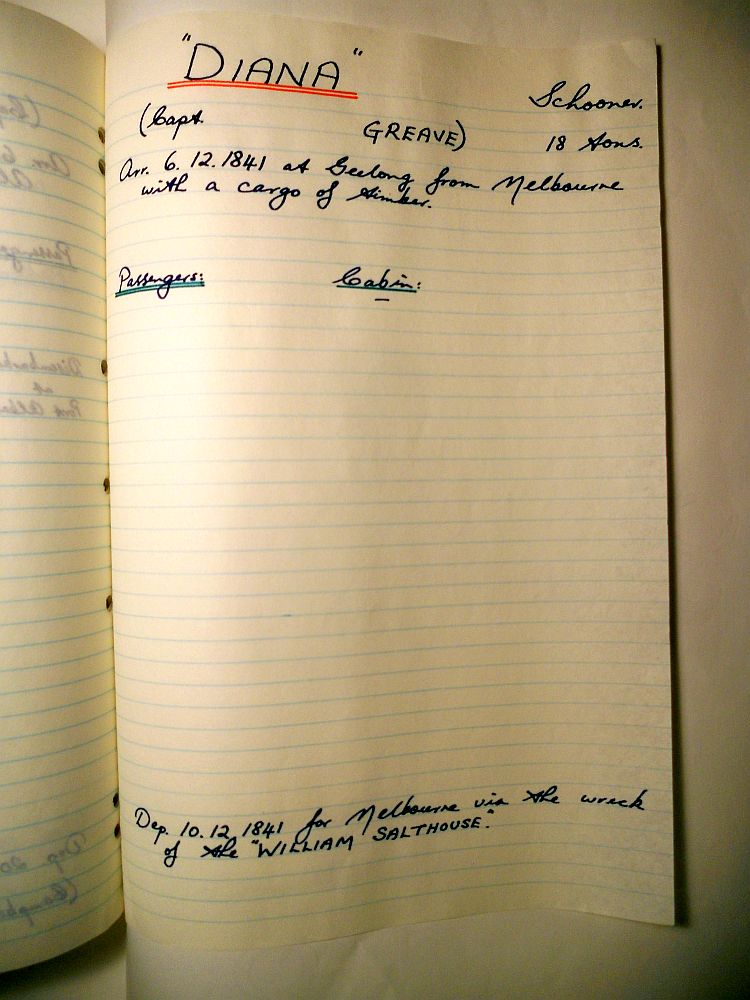 "DIANA"
Schooner.
(Capt. GREAVE) 18 tons.
Arr. 6.12.1841 at Geelong from Melbourne
with a cargo of timber.
Passengers: Cabin:
—
Dep. 10.12.1841 for Melbourne via the wreck
of the "WILLIAM SALTHOUSE".